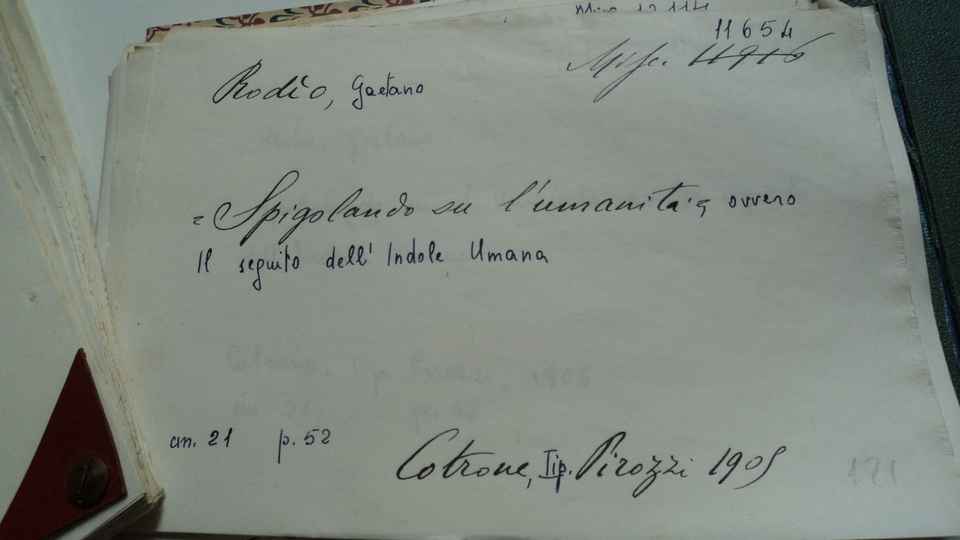 11654
Misc.
Rodio, Gaetano
= Spigolando su l'umanità = ovvero
Il seguito dell'Indole Umana
cm. 21 p. 52
Cotrone, Tip. Pirozzi 1905
121